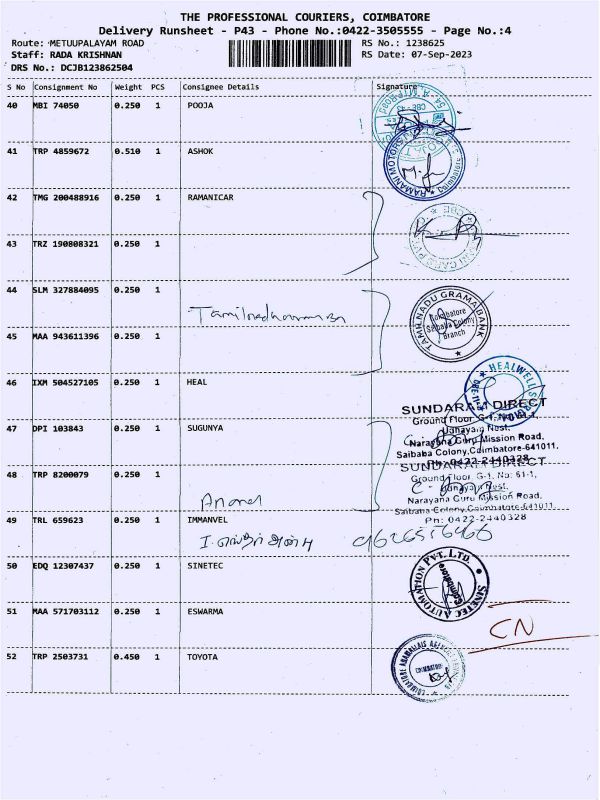 THE PROFESSIONAL COURIERS, COIMBATORE
Delivery Runsheet - P43 - Phone No.:0422-3505555 - Page No.:4
Route: METUUPALAYAM ROAD RS No.: 1238625
Staff: RADA KRISHNAN RS Date: 07-Sep-2023
DRS No.: DCJB123862504
S No Consignment No Weight PCS Consignee Details Signature
40 MBI 74050 0.250 1 POOJA
41 TRP 4859672 0.510 1 ASHOK
RAMANI MOTORS Coimbatore
42 TMG 200488916 0.250 1 RAMANICAR
43 TRZ 190808321 0.250 1
44 SLM 327884095 0.250 1
TAMIL NADU GRAMA BANK
Coimbatore
Saibaba Colony
Branch
45 MAA 943611396 0.250 1
46 IXM 504527105 0.250 1 HEAL
SUNDARAM DIRECT
Ground Floor, G-1, No: 61-1,
47 DPI 103843 0.250 1 SUGUNYA
Narayana Guru Mission Road,
Saibaba Colony, Coimbatore-641011.
Ph: 0422-2440328
SUNDARAM DIRECT
48 TRP 8200079 0.250 1
Ground Floor, G-1, No: 61-1,
Narayana Guru Mission Road,
Saibaba Colony, Coimbatore-641011
Anand
49 TRL 659623 0.250 1 IMMANVEL
Ph: 0422-2440328
50 EDQ 12307437 0.250 1 SINETEC
SINETEC AUTOMATION PVT. LTD.
Coimbatore
51 MAA 571703112 0.250 1 ESWARMA
CN
52 TRP 2503731 0.450 1 TOYOTA
COIMBATORE